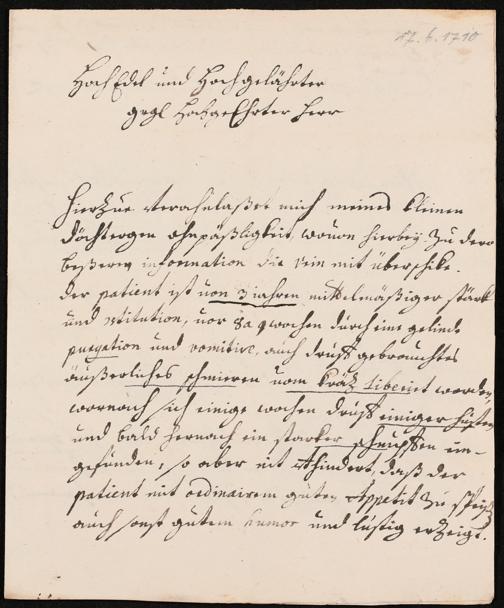 17. 6. 1710
HochEdel und Hochgelährter
HochgeEhrter Herr
Hierzue veranlaßet mich meines kleinen
döchtergen ohnpäßligkeit, wovon hierbey zu dero
beßeren information die mit überschike.
der patient ist von 3 jahren mittelmäßiger stärk
und vor 8 a 9 wochen durch eine gelinde
purgation und vomitive, auch durch gebrauchtes
äußerliches schmieren vom Krätz liberirt worden,
wornach sich einige wochen einiger husten
und bald hernach ein starker schnupffen ein-
gefunden, so aber nit daß der
patient mit ordinairem guten Appetit zu
auch sonst gutem humor und lustig erzeigt.